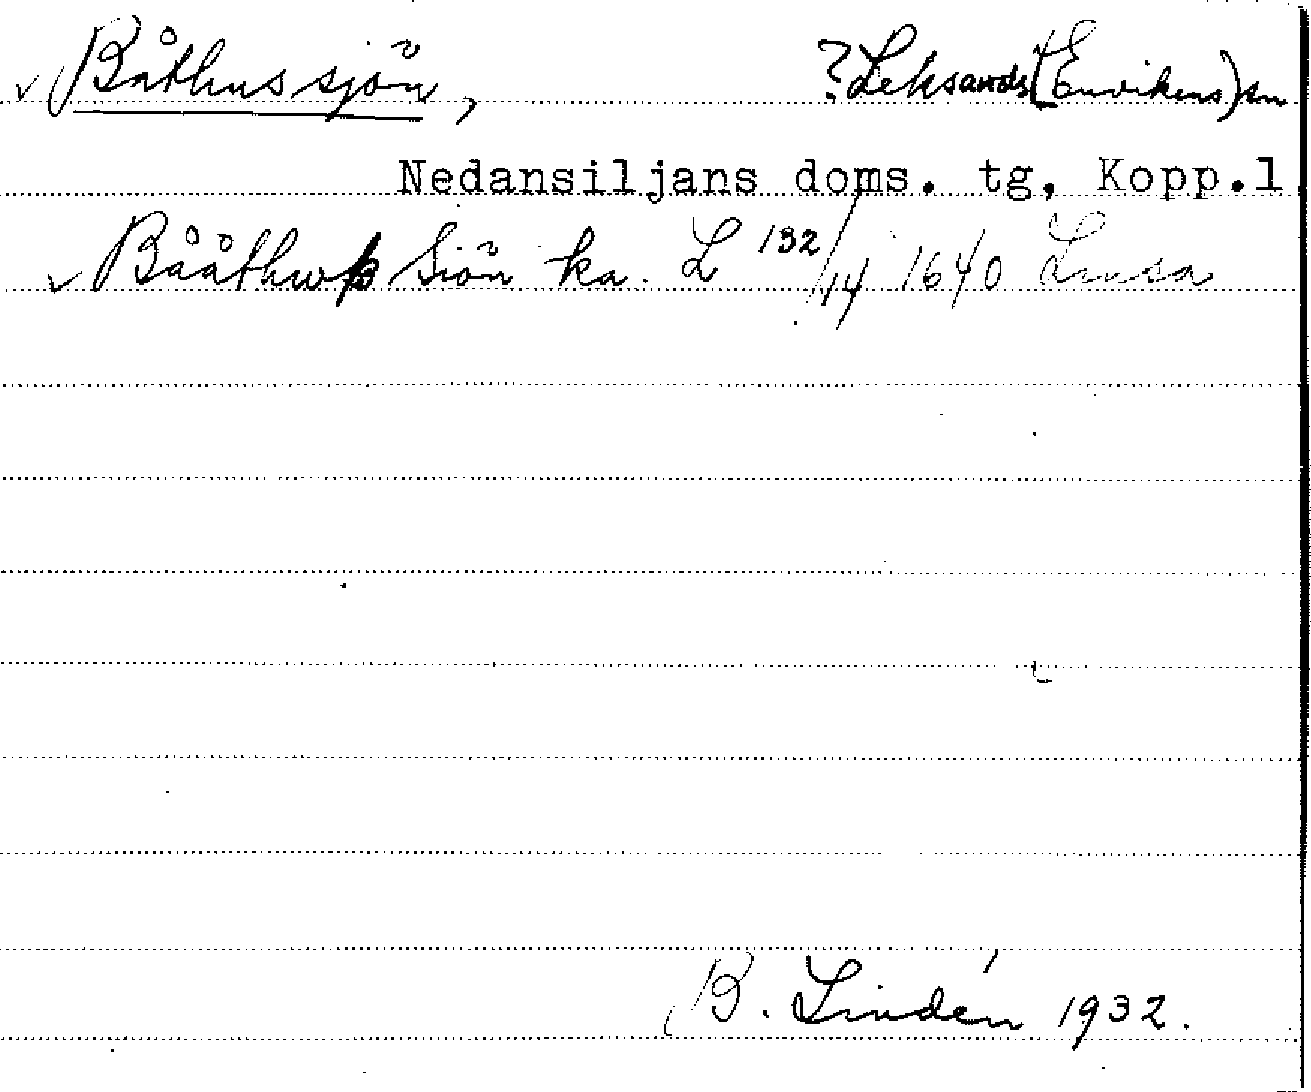 v Båthussjön, ? Leksands (Envikens) sn
Nedansiljans doms. tg, Kopp.l
v Bååthwß Siön ka. L 132/14 1640 Linsa
B. Lindén 1932.